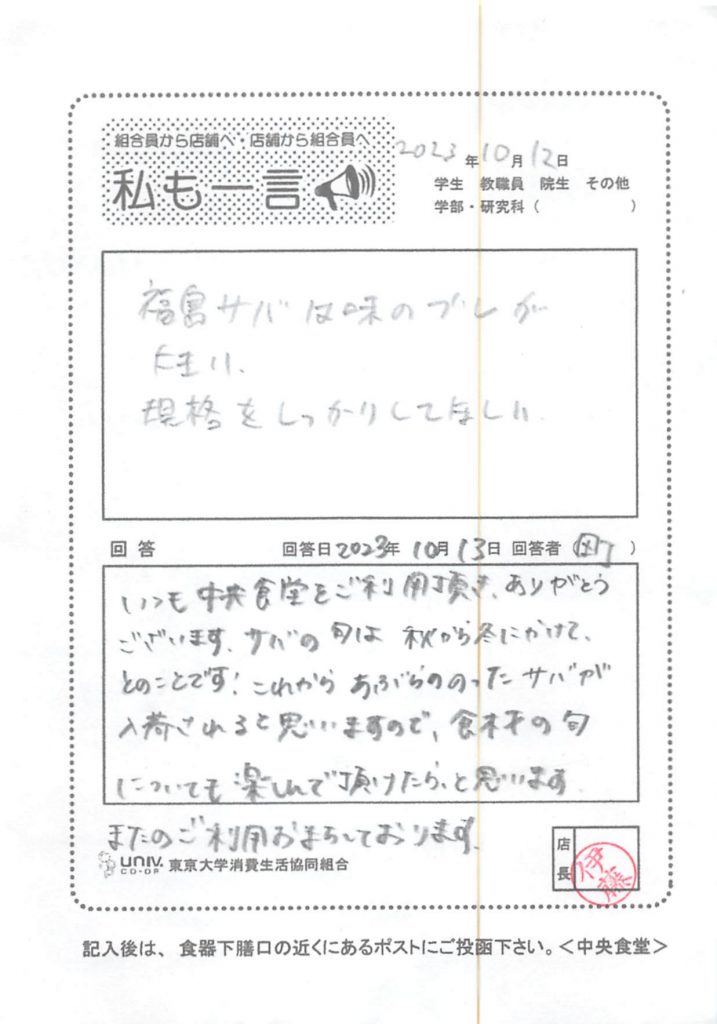 組合員から店舗へ・店舗から組合員へ
私も一言
2023年10月12日
学生 教職員 院生 その他
学部・研究科（ ）
福島サバは味のブレが
大きい、
規格をしっかりしてほしい
回答 回答日2023年10月13日 回答者（町）
いつも中央食堂をご利用頂き、ありがとう
ございます。サバの旬は秋から冬にかけて、
とのことです！これからあぶらののったサバが
入荷されると思いますので、食材の旬
についても楽しんで頂けたら、と思います。
またのご利用おまちしております。
univ. CO-OP 東京大学消費生活協同組合
店長 伊藤
記入後は、食器下膳口の近くにあるポストにご投函下さい。＜中央食堂＞